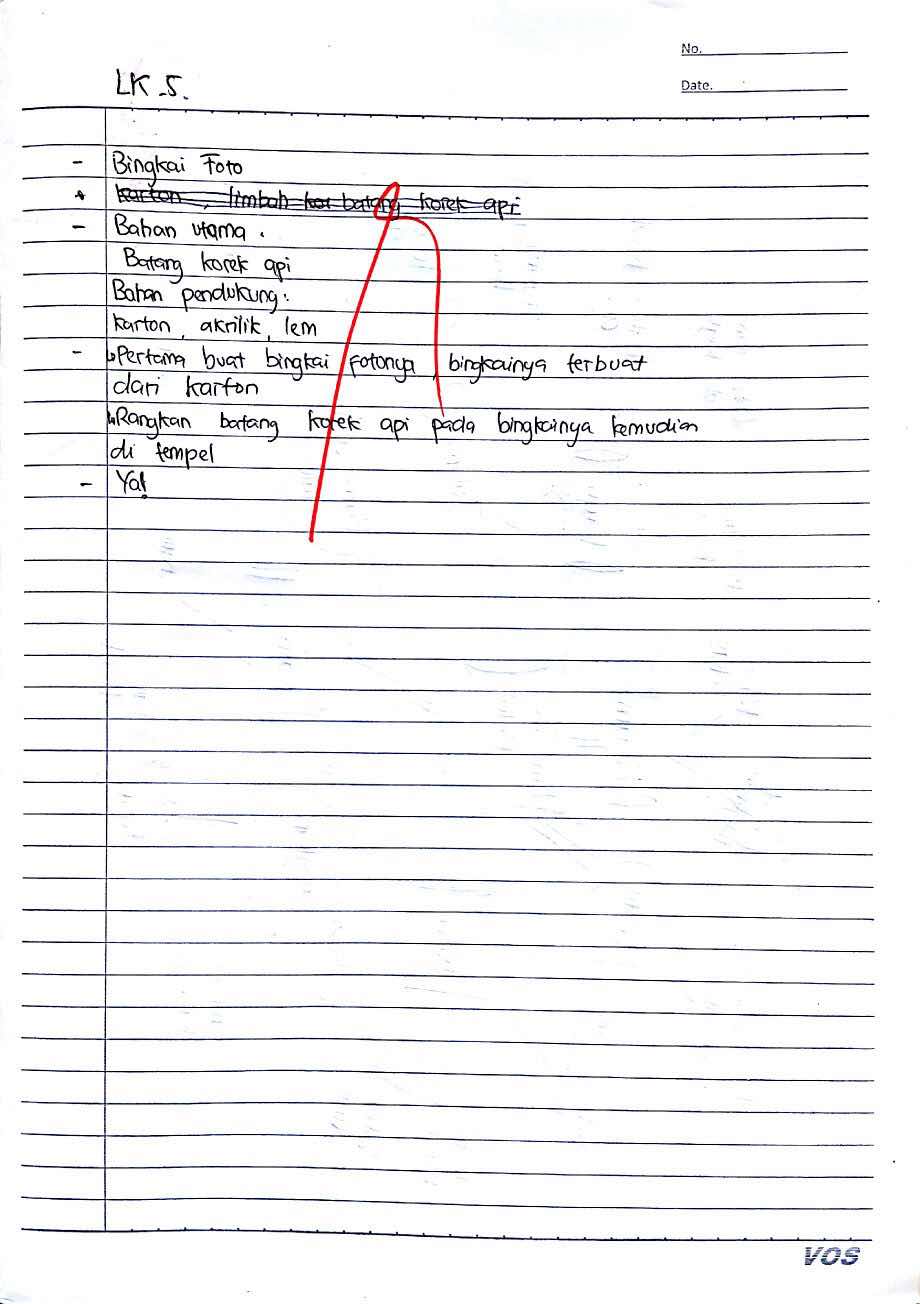 No.
Date.
LK 5.
- Bingkai Foto
karton, limbah kor batang korek api
- Bahan utama.
Batang korek api
Bahan pendukung:
karton, akrilik, lem
- ↳Pertama buat bingkai fotonya, bingkainya terbuat
dari karton
↳Rangkan batang korek api pada bingkainya kemudian
di tempel
- Ya!
VOS